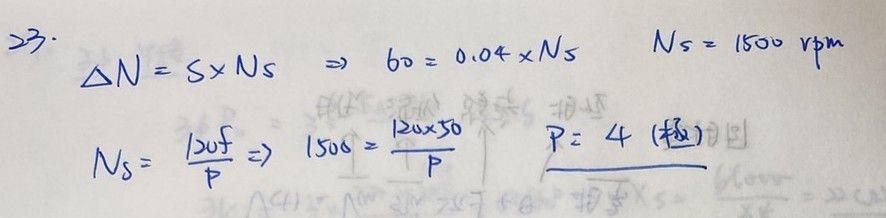 23.
ΔN = S×Ns ⇒ 60 = 0.04×Ns Ns = 1500 rpm
Ns = 120f/P ⇒ 1500 = 120×50/P P = 4 (極)